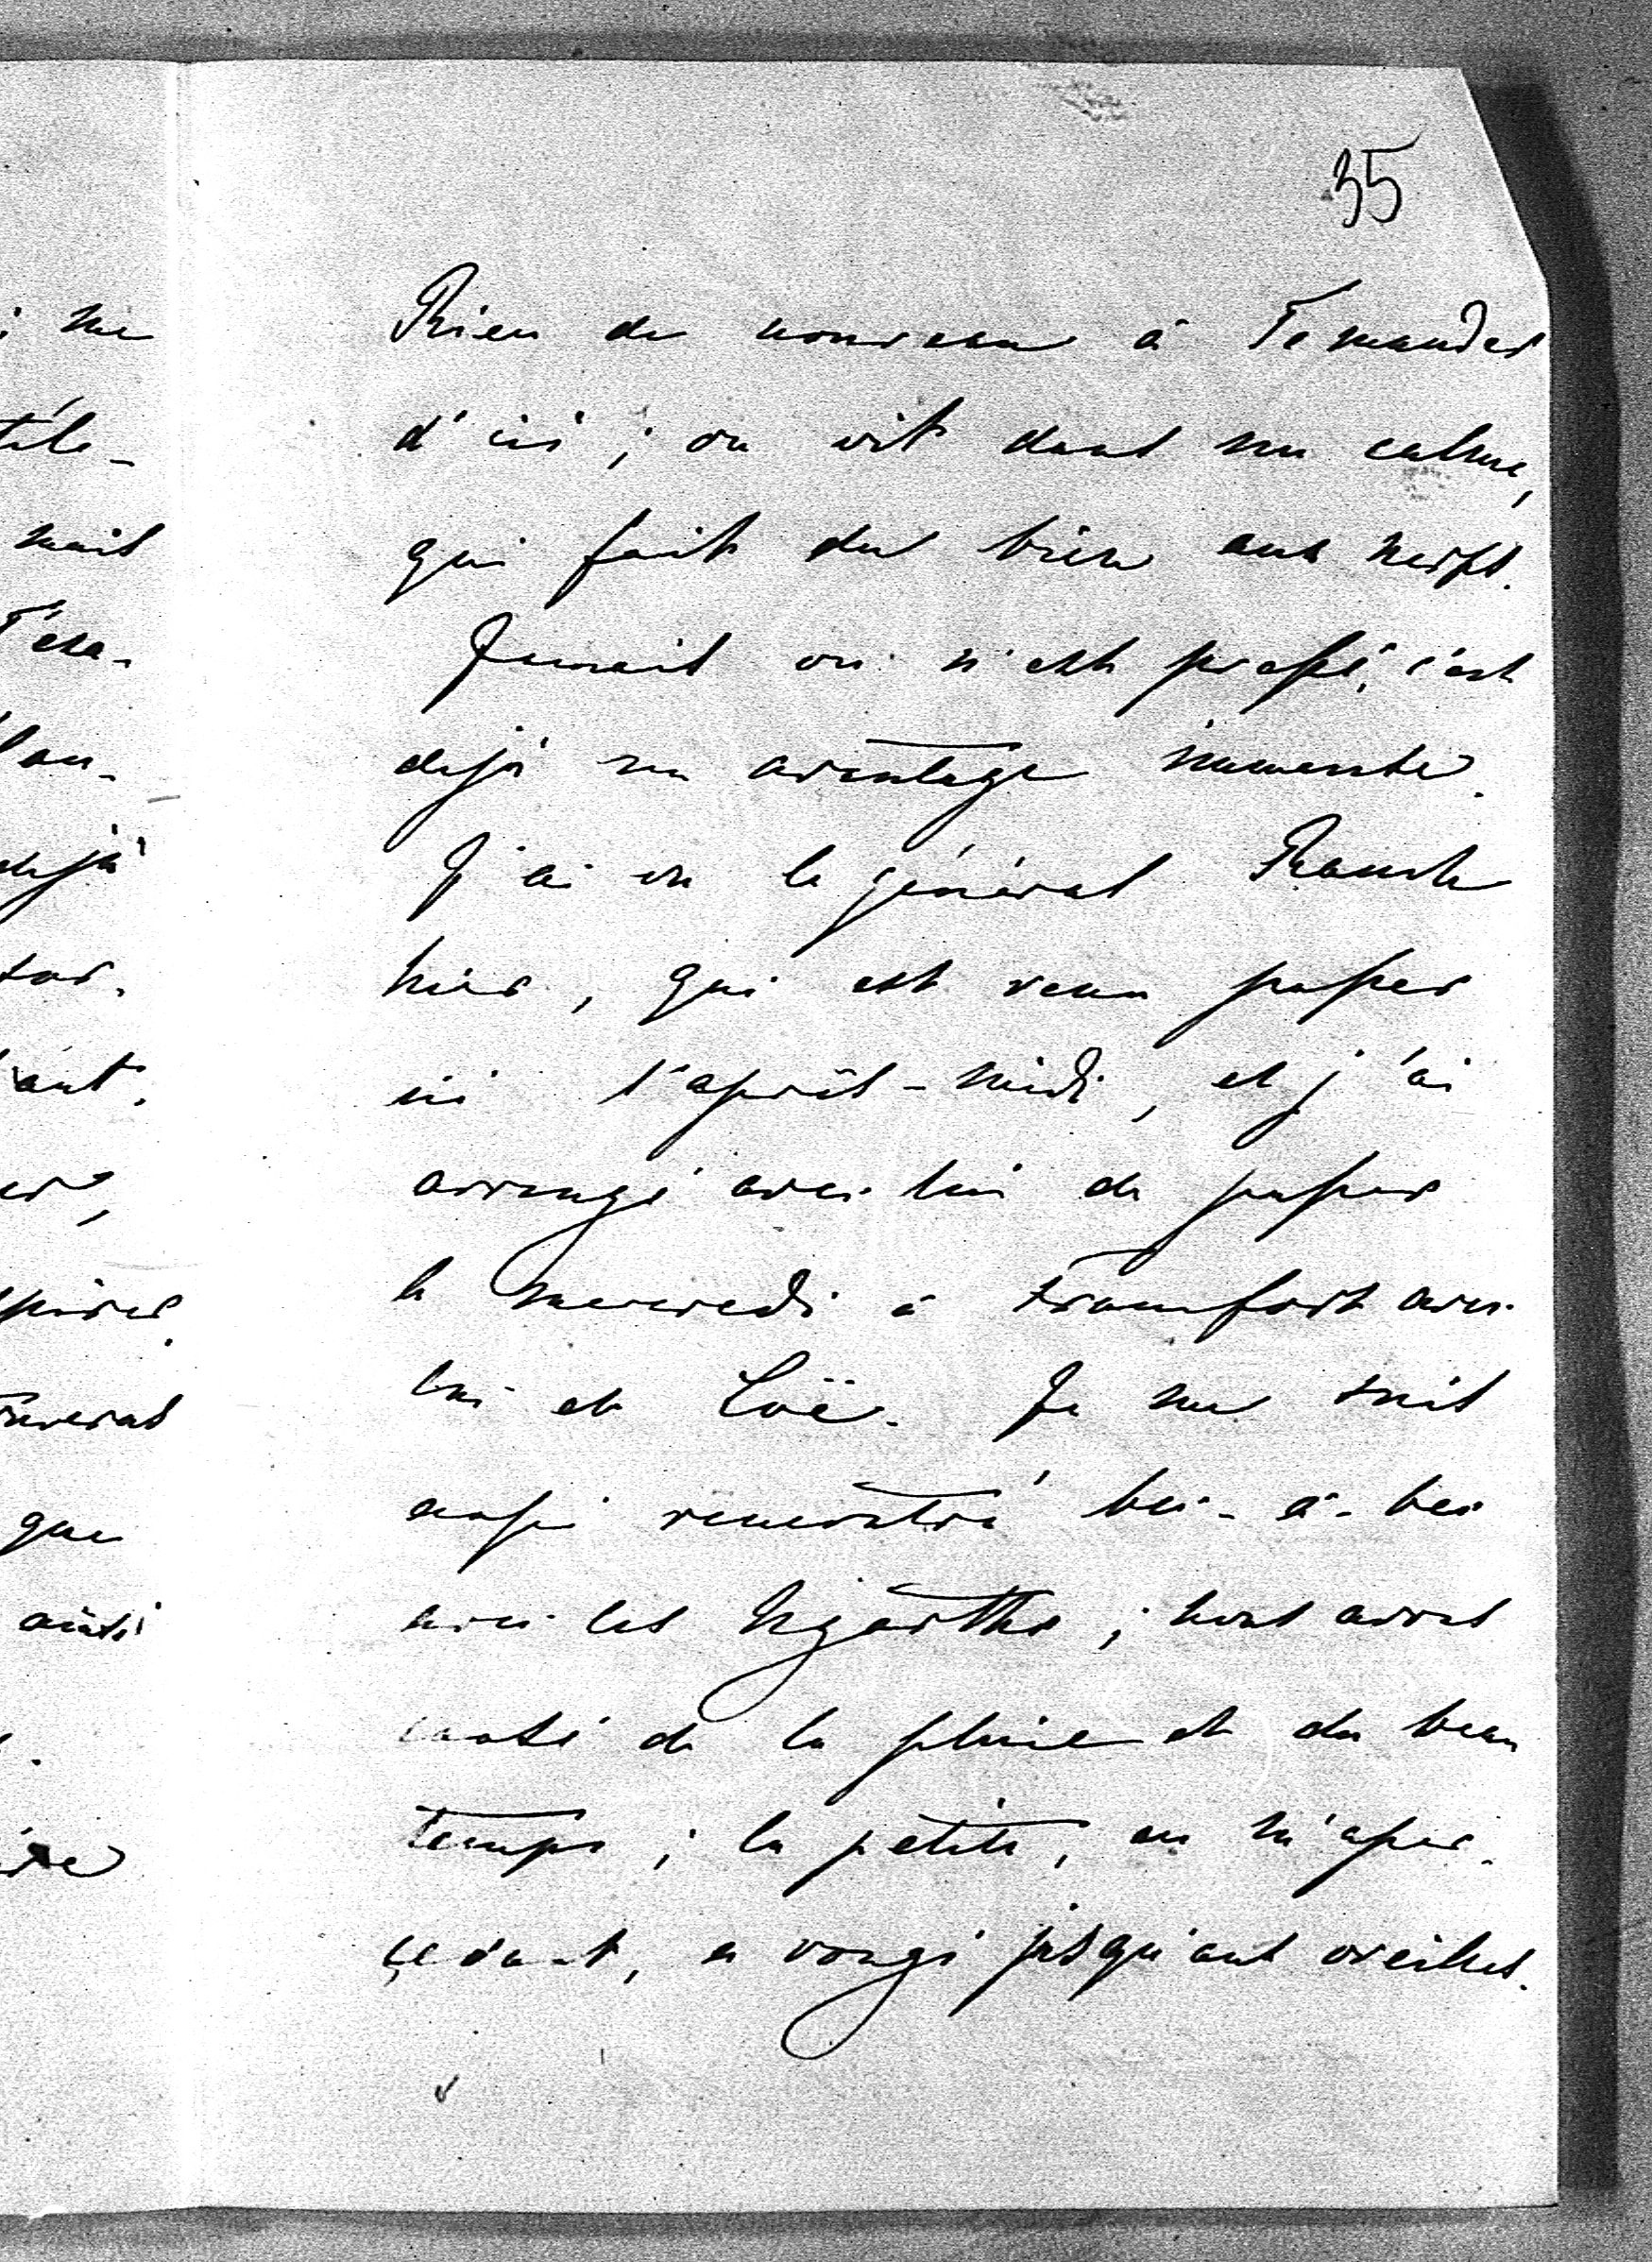 35
Rien de nouveau à Te mander
d'ici ; on vit dans un calme,
qui fait du bien aux nerfs.
Jamais on n'est pressé, c'est
dejà un avantage immense.
J'ai vu le général Rauch
hier, qui est venu passer
ici l'après-midi, et j'ai
arrangé avec lui de passer
le mercredi à Francfort avec
lui et Loë. Je me suis
aussi rencontré bec-à-bec
avec les ; nous avons
causé de la pluie et du beau
temps ; la petite, en m'aper-
cevant, a rougi jusqu'aux oreilles.
me
mais
dejà
que
ainsi